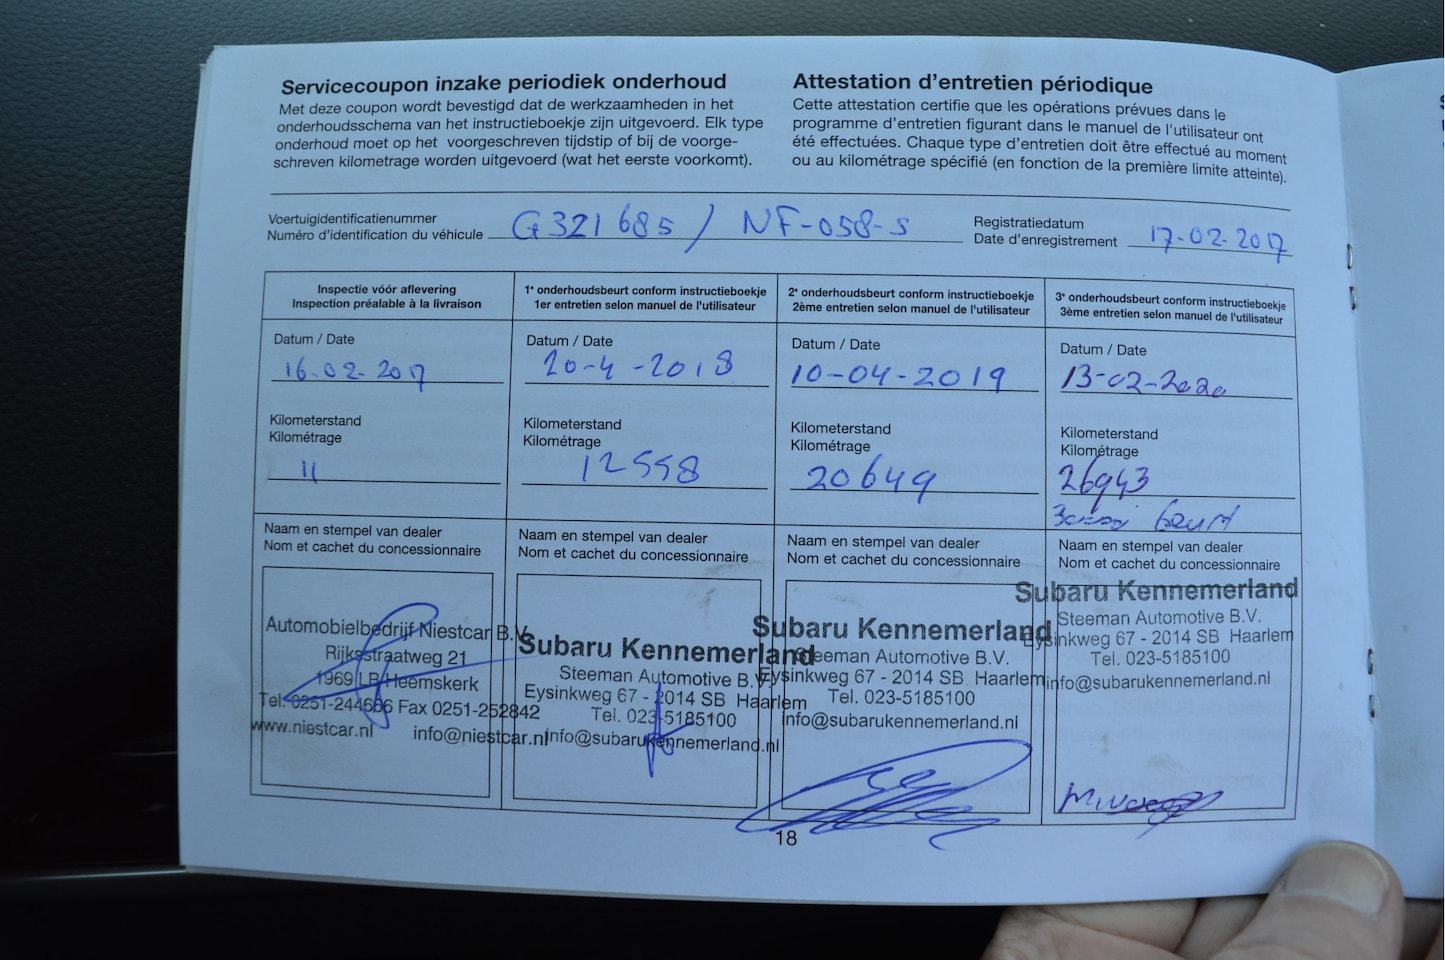 Servicecoupon inzake periodiek onderhoud
Met deze coupon wordt bevestigd dat de werkzaamheden in het
onderhoudsschema van het instructieboekje zijn uitgevoerd. Elk type
onderhoud moet op het voorgeschreven tijdstip of bij de voorge-
schreven kilometrage worden uitgevoerd (wat het eerste voorkomt).
Attestation d'entretien périodique
Cette attestation certifie que les opérations prévues dans le
programme d'entretien figurant dans le manuel de l'utilisateur ont
été effectuées. Chaque type d'entretien doit être effectué au moment
ou au kilométrage spécifié (en fonction de la première limite atteinte).
Voertuigidentificatienummer
Numéro d'identification du véhicule G321685 / NF-058-S
Registratiedatum
Date d'enregistrement 17-02-2017
Inspectie vóór aflevering
Inspection préalable à la livraison
Datum / Date
16-02-2017
Kilometerstand
Kilométrage
11
Naam en stempel van dealer
Nom et cachet du concessionnaire
Automobielbedrijf Niestcar B.V.
Rijksstraatweg 21
1969 LB Heemskerk
Tel. 0251-244666 Fax 0251-252842
www.niestcar.nl info@niestcar.nl
1e onderhoudsbeurt conform instructieboekje
1er entretien selon manuel de l'utilisateur
Datum / Date
20-4-2018
Kilometerstand
Kilométrage
12558
Naam en stempel van dealer
Nom et cachet du concessionnaire
Subaru Kennemerland
Steeman Automotive B.V.
Eysinkweg 67 - 2014 SB Haarlem
Tel. 023-5185100
info@subarukennemerland.nl
2e onderhoudsbeurt conform instructieboekje
2ème entretien selon manuel de l'utilisateur
Datum / Date
10-04-2019
Kilometerstand
Kilométrage
20649
Naam en stempel van dealer
Nom et cachet du concessionnaire
Subaru Kennemerland
Steeman Automotive B.V.
Eysinkweg 67 - 2014 SB Haarlem
Tel. 023-5185100
info@subarukennemerland.nl
3e onderhoudsbeurt conform instructieboekje
3ème entretien selon manuel de l'utilisateur
Datum / Date
13-02-2020
Kilometerstand
Kilométrage
26943
Beurt
Naam en stempel van dealer
Nom et cachet du concessionnaire
Subaru Kennemerland
Steeman Automotive B.V.
Eysinkweg 67 - 2014 SB Haarlem
Tel. 023-5185100
info@subarukennemerland.nl
18